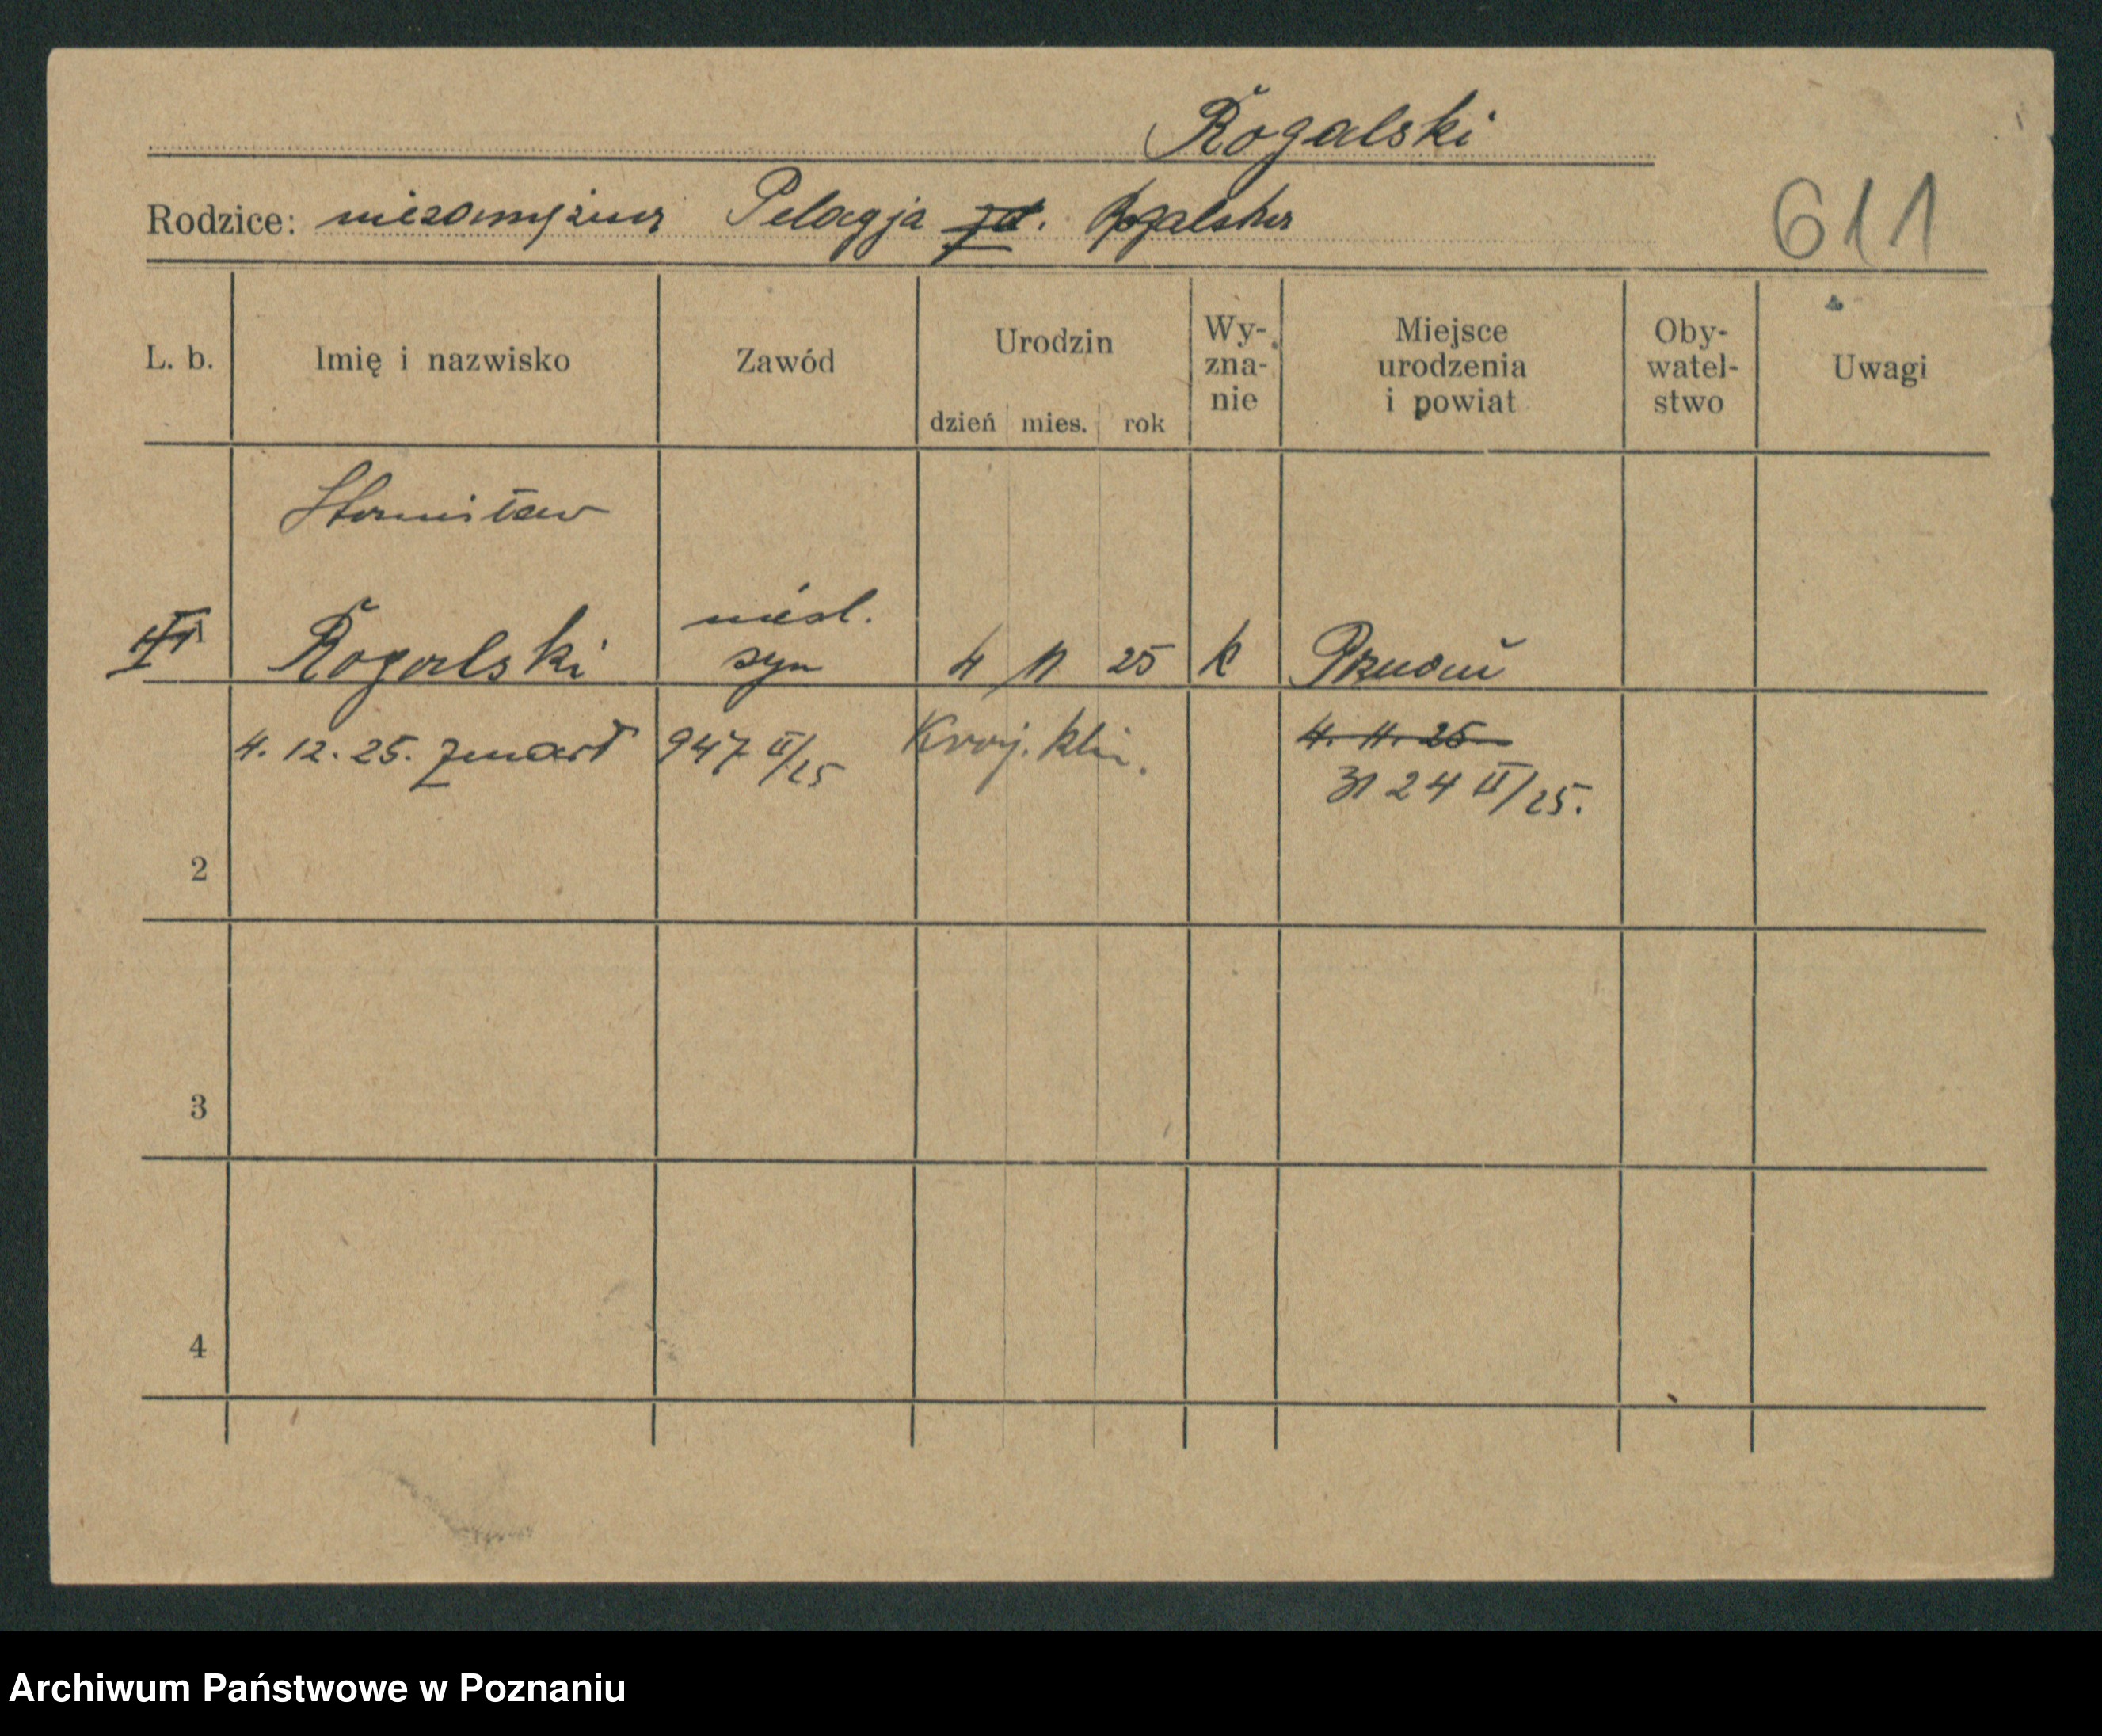 Rogalski
Rodzice: niezamężna Pelagja Rogalska
611
L. b.
Imię i nazwisko
Zawód
Urodzin
dzień mies. rok
Wy-
zna-
nie
Miejsce
urodzenia
i powiat
Oby-
watel-
stwo
Uwagi
Stanisław
Rogalski
nieśl.
syn
4 11 25 k Poznań
4. 12. 25. zmarł 947 II/25 Kroj. klin.
4. 11. 25
3124 II/25.
2
3
4
Archiwum Państwowe w Poznaniu